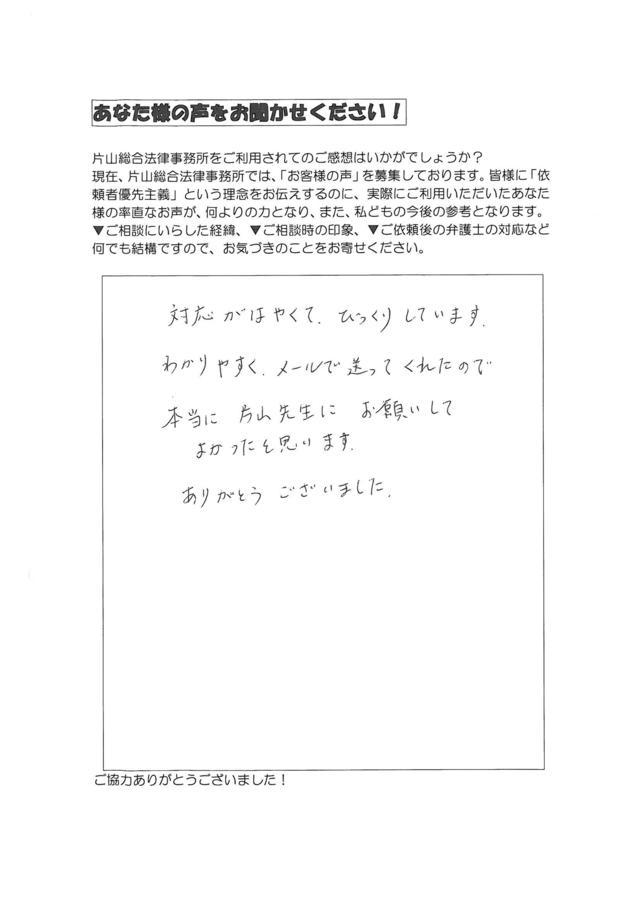 あなた様の声をお聞かせください！
片山総合法律事務所をご利用されてのご感想はいかがでしょうか？
現在、片山総合法律事務所では、「お客様の声」を募集しております。皆様に「依
頼者優先主義」という理念をお伝えするのに、実際にご利用いただいたあなた
様の率直なお声が、何よりの力となり、また、私どもの今後の参考となります。
▼ご相談にいらした経緯、▼ご相談時の印象、▼ご依頼後の弁護士の対応など
何でも結構ですので、お気づきのことをお寄せください。
対応がはやくて、びっくりしています。
わかりやすく、メールで送ってくれたので
本当に 片山先生に お願いして
よかったと思います。
ありがとう ございました。
ご協力ありがとうございました！